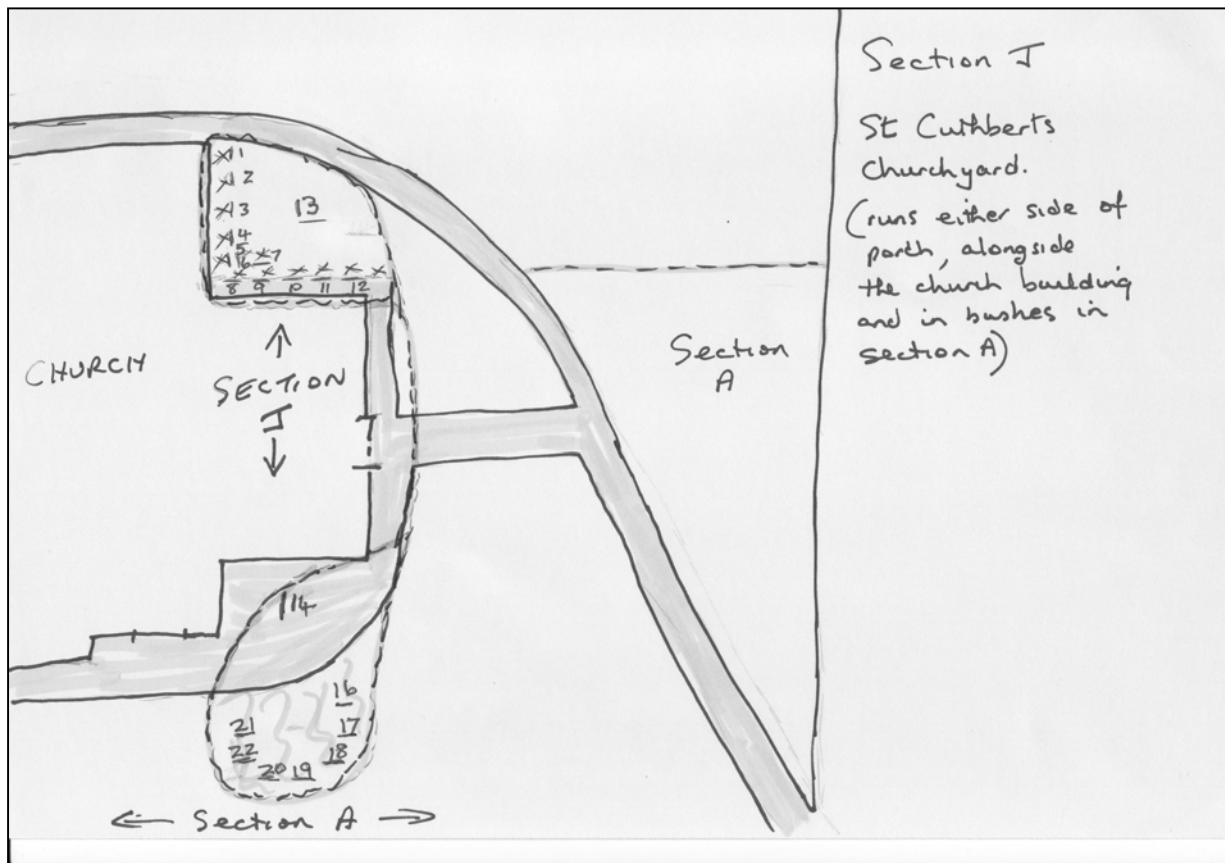 Section J
St Cuthberts
Churchyard.
(runs either side of
porch, alongside
the church building
and in bushes in
section A)
1
2
3
13
4
5
7
6
8 9 10 11 12
CHURCH
SECTION
J
Section
A
14
16
21
17
22
18
20 19
Section A